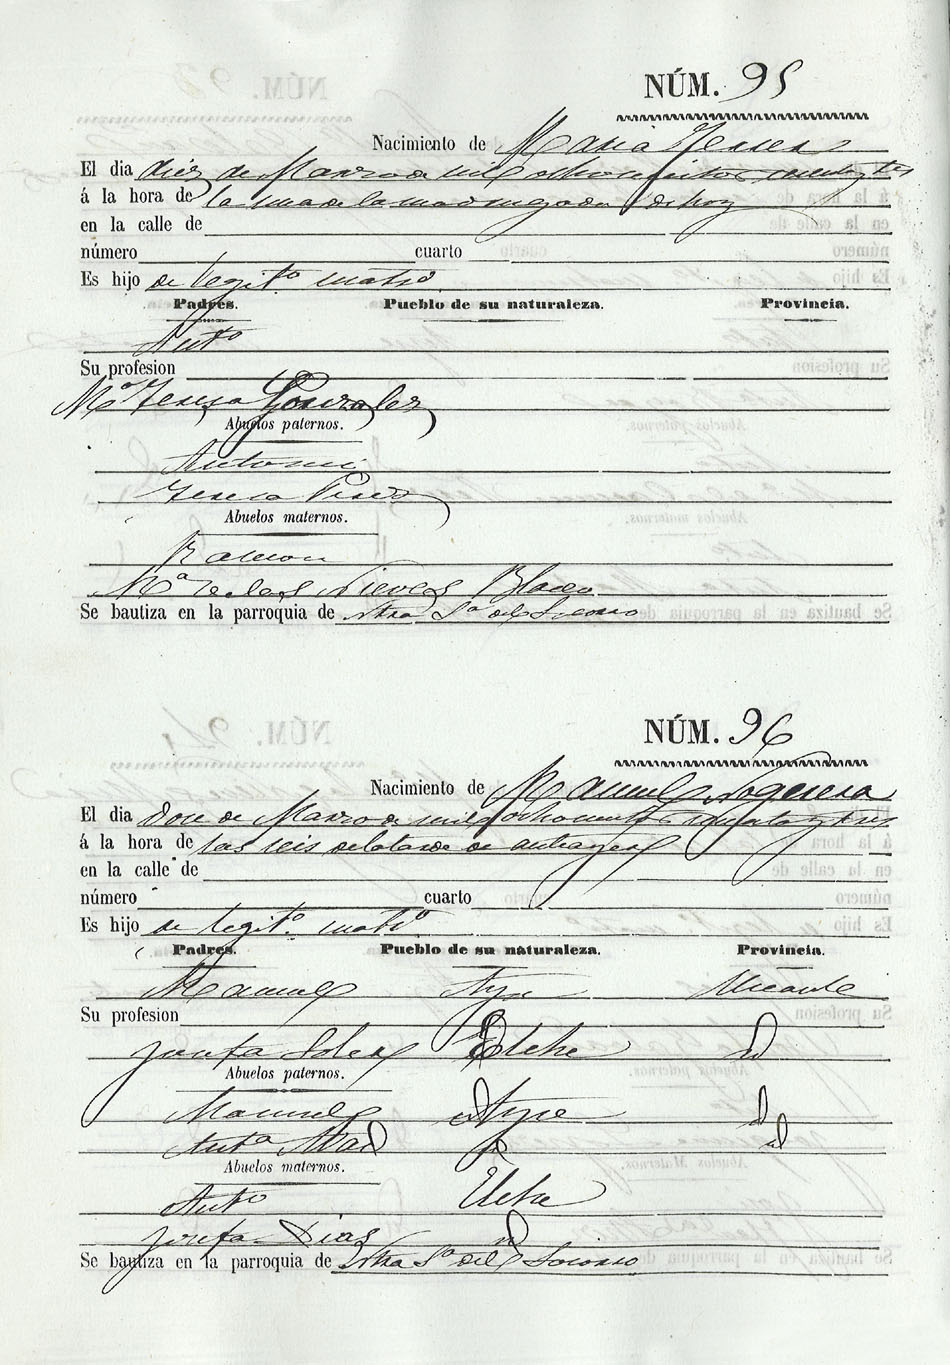 NÚM. 95
Nacimiento de Maria Ferrer
El dia diez de Marzo de mil ochocientos cuarenta y tres
á la hora de la una de la madrugada de hoy
en la calle de
número cuarto
Es hijo de legit.º matrº
Padres. Pueblo de su naturaleza. Provincia.
Antº
Su profesion
Mª Teresa Gonzalez
Abuelos paternos.
Antonio
Teresa
Abuelos maternos.
Ramon
Mª de las Nieves Blasco
Se bautiza en la parroquia de Ntra Sª del Socorro
NÚM. 96
Nacimiento de Manuel Noguera
El dia doce de Marzo de mil ochocientos cuarenta y tres
á la hora de las seis de la tarde de antiayer
en la calle de
número cuarto
Es hijo de legit.º matrº
Padres. Pueblo de su naturaleza. Provincia.
Manuel Aspe Alicante
Su profesion
Josefa Soler Elche id
Abuelos paternos.
Manuel Aspe id
Antª Mad id id
Abuelos maternos.
Antº Elche
Josefa Dias id
Se bautiza en la parroquia de Ntra Sª del Socorro